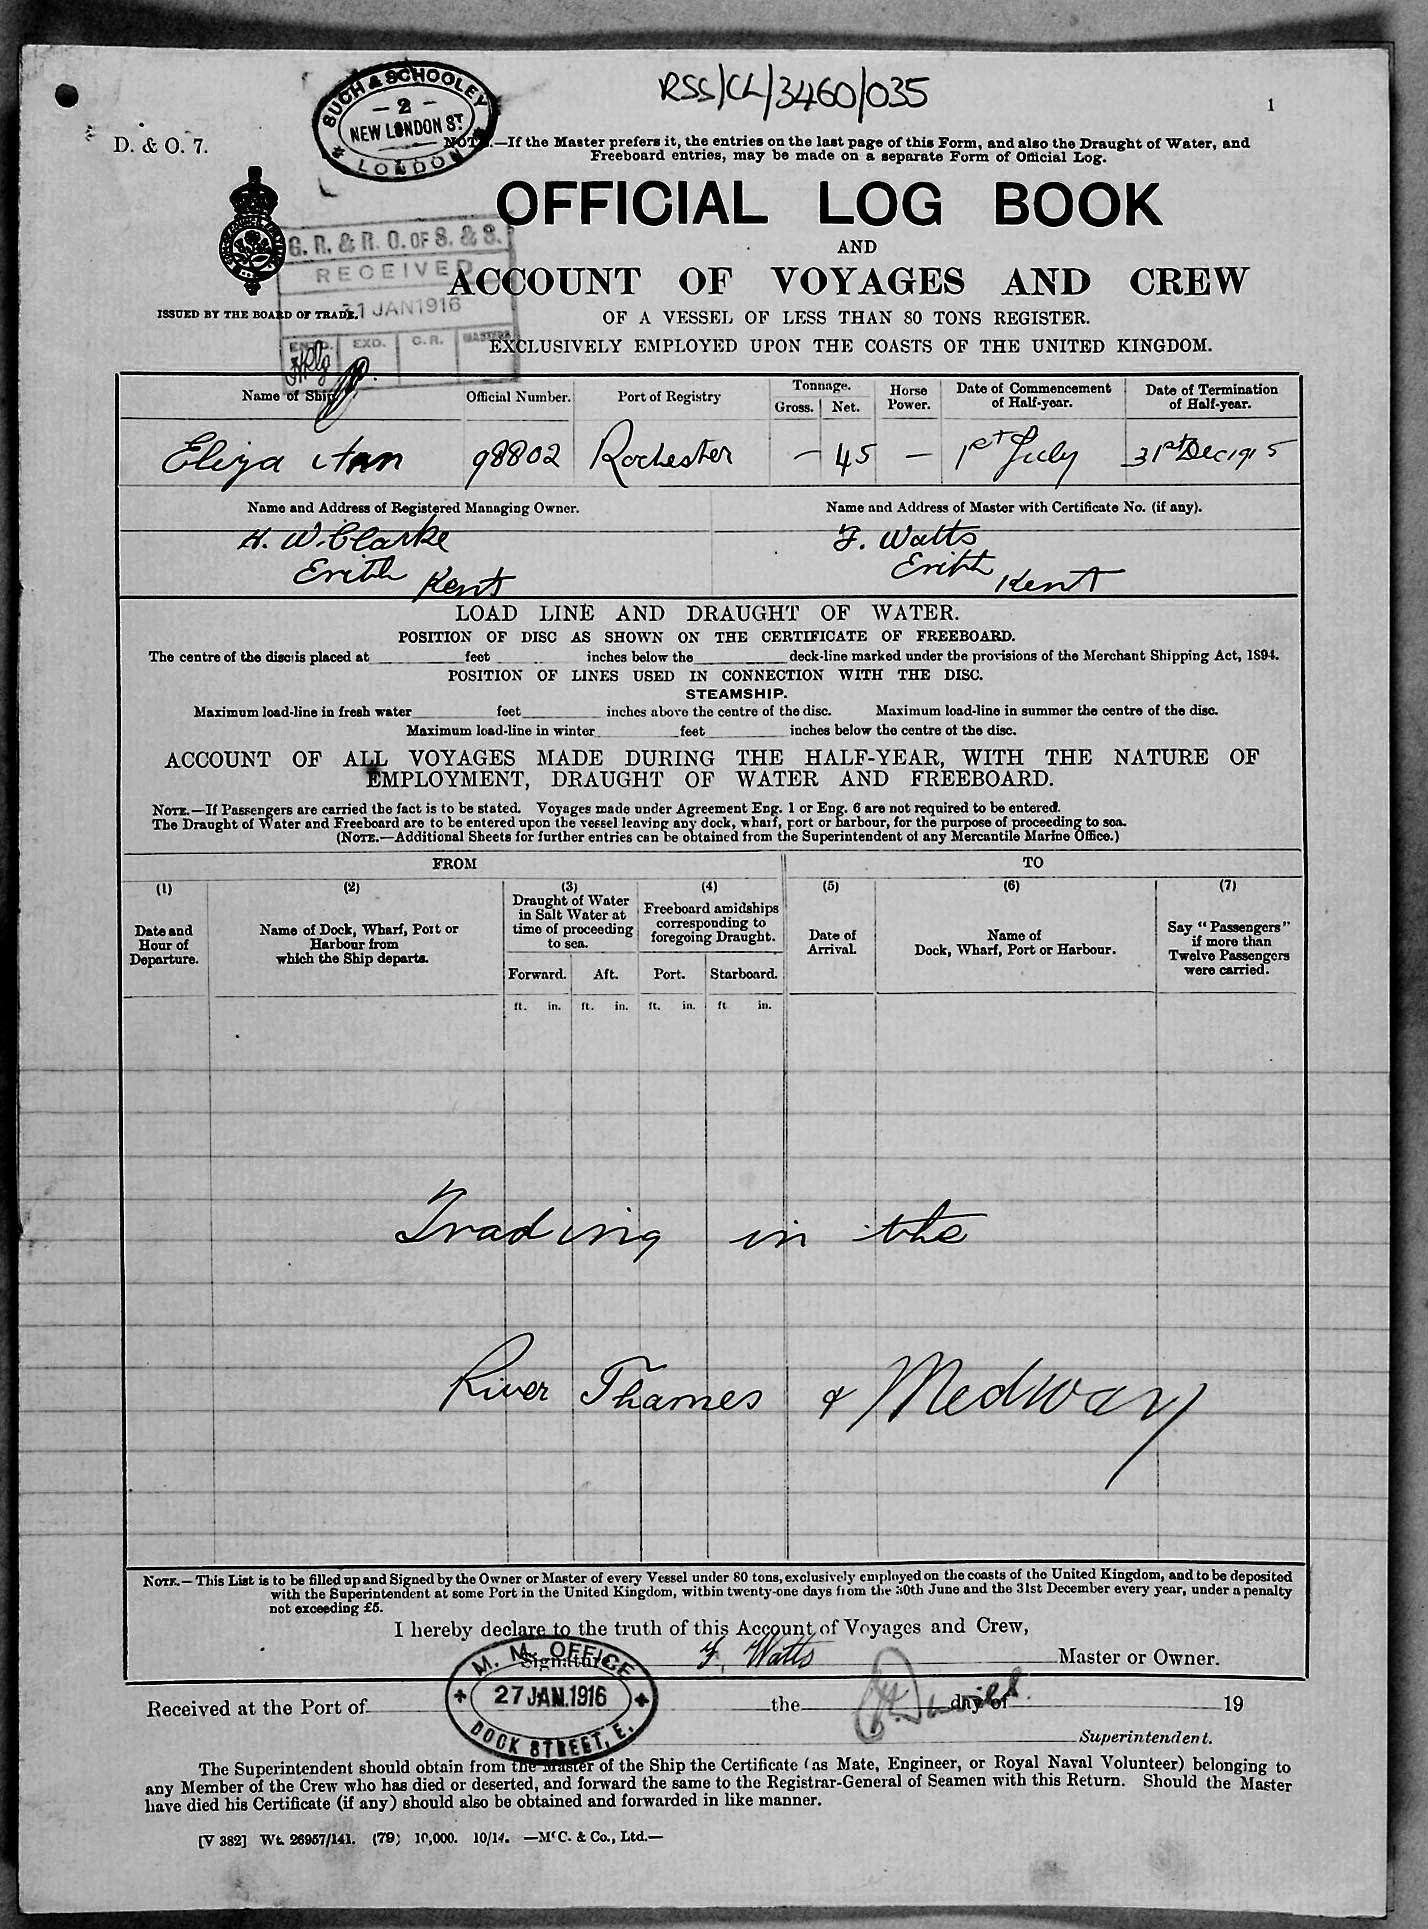 RSS/CL/3460/035
1
SUCH & SCHOOLEY
- 2 -
NEW LONDON ST.
LONDON
D. & O. 7.
NOTE.—If the Master prefers it, the entries on the last page of this Form, and also the Draught of Water, and
Freeboard entries, may be made on a separate Form of Official Log.
OFFICIAL LOG BOOK
AND
ACCOUNT OF VOYAGES AND CREW
OF A VESSEL OF LESS THAN 80 TONS REGISTER.
EXCLUSIVELY EMPLOYED UPON THE COASTS OF THE UNITED KINGDOM.
G. R. & R. O. OF S. & S.
RECEIVED
31 JAN 1916
ENTD. EXD. C.R. MASTERS
ISSUED BY THE BOARD OF TRADE.
Name of Ship Official Number. Port of Registry Tonnage. Gross. Net. Horse Power. Date of Commencement of Half-year. Date of Termination of Half-year.
Eliza Ann 98802 Rochester — 45 — 1st July 31st Dec 1915
Name and Address of Registered Managing Owner. Name and Address of Master with Certificate No. (if any).
H. W. Clarke F. Watts
Erith Kent Erith Kent
LOAD LINE AND DRAUGHT OF WATER.
POSITION OF DISC AS SHOWN ON THE CERTIFICATE OF FREEBOARD.
The centre of the disc is placed at feet inches below the deck-line marked under the provisions of the Merchant Shipping Act, 1894.
POSITION OF LINES USED IN CONNECTION WITH THE DISC.
STEAMSHIP.
Maximum load-line in fresh water feet inches above the centre of the disc. Maximum load-line in summer the centre of the disc.
Maximum load-line in winter feet inches below the centre of the disc.
ACCOUNT OF ALL VOYAGES MADE DURING THE HALF-YEAR, WITH THE NATURE OF
EMPLOYMENT, DRAUGHT OF WATER AND FREEBOARD.
NOTE.—If Passengers are carried the fact is to be stated. Voyages made under Agreement Eng. 1 or Eng. 6 are not required to be entered.
The Draught of Water and Freeboard are to be entered upon the vessel leaving any dock, wharf, port or harbour, for the purpose of proceeding to sea.
(NOTE.—Additional Sheets for further entries can be obtained from the Superintendent of any Mercantile Marine Office.)
FROM TO
(1) (2) (3) (4) (5) (6) (7)
Date and Hour of Departure.
Name of Dock, Wharf, Port or Harbour from which the Ship departs.
Draught of Water in Salt Water at time of proceeding to sea.
Freeboard amidships corresponding to foregoing Draught.
Date of Arrival.
Name of Dock, Wharf, Port or Harbour.
Say "Passengers" if more than Twelve Passengers were carried.
Forward. Aft. Port. Starboard.
ft. in. ft. in. ft. in. ft in.
Trading in the
River Thames & Medway
NOTE.—This List is to be filled up and Signed by the Owner or Master of every Vessel under 80 tons, exclusively employed on the coasts of the United Kingdom, and to be deposited
with the Superintendent at some Port in the United Kingdom, within twenty-one days from the 30th June and the 31st December every year, under a penalty
not exceeding £5.
I hereby declare to the truth of this Account of Voyages and Crew,
Signature F. Watts Master or Owner.
M. M. OFFICE
27 JAN. 1916
DOCK STREET, E.
Received at the Port of the day of 19
Superintendent.
The Superintendent should obtain from the Master of the Ship the Certificate (as Mate, Engineer, or Royal Naval Volunteer) belonging to
any Member of the Crew who has died or deserted, and forward the same to the Registrar-General of Seamen with this Return. Should the Master
have died his Certificate (if any) should also be obtained and forwarded in like manner.
[V 382] Wt. 26957/141. (79) 10,000. 10/14. —McC. & Co., Ltd.—